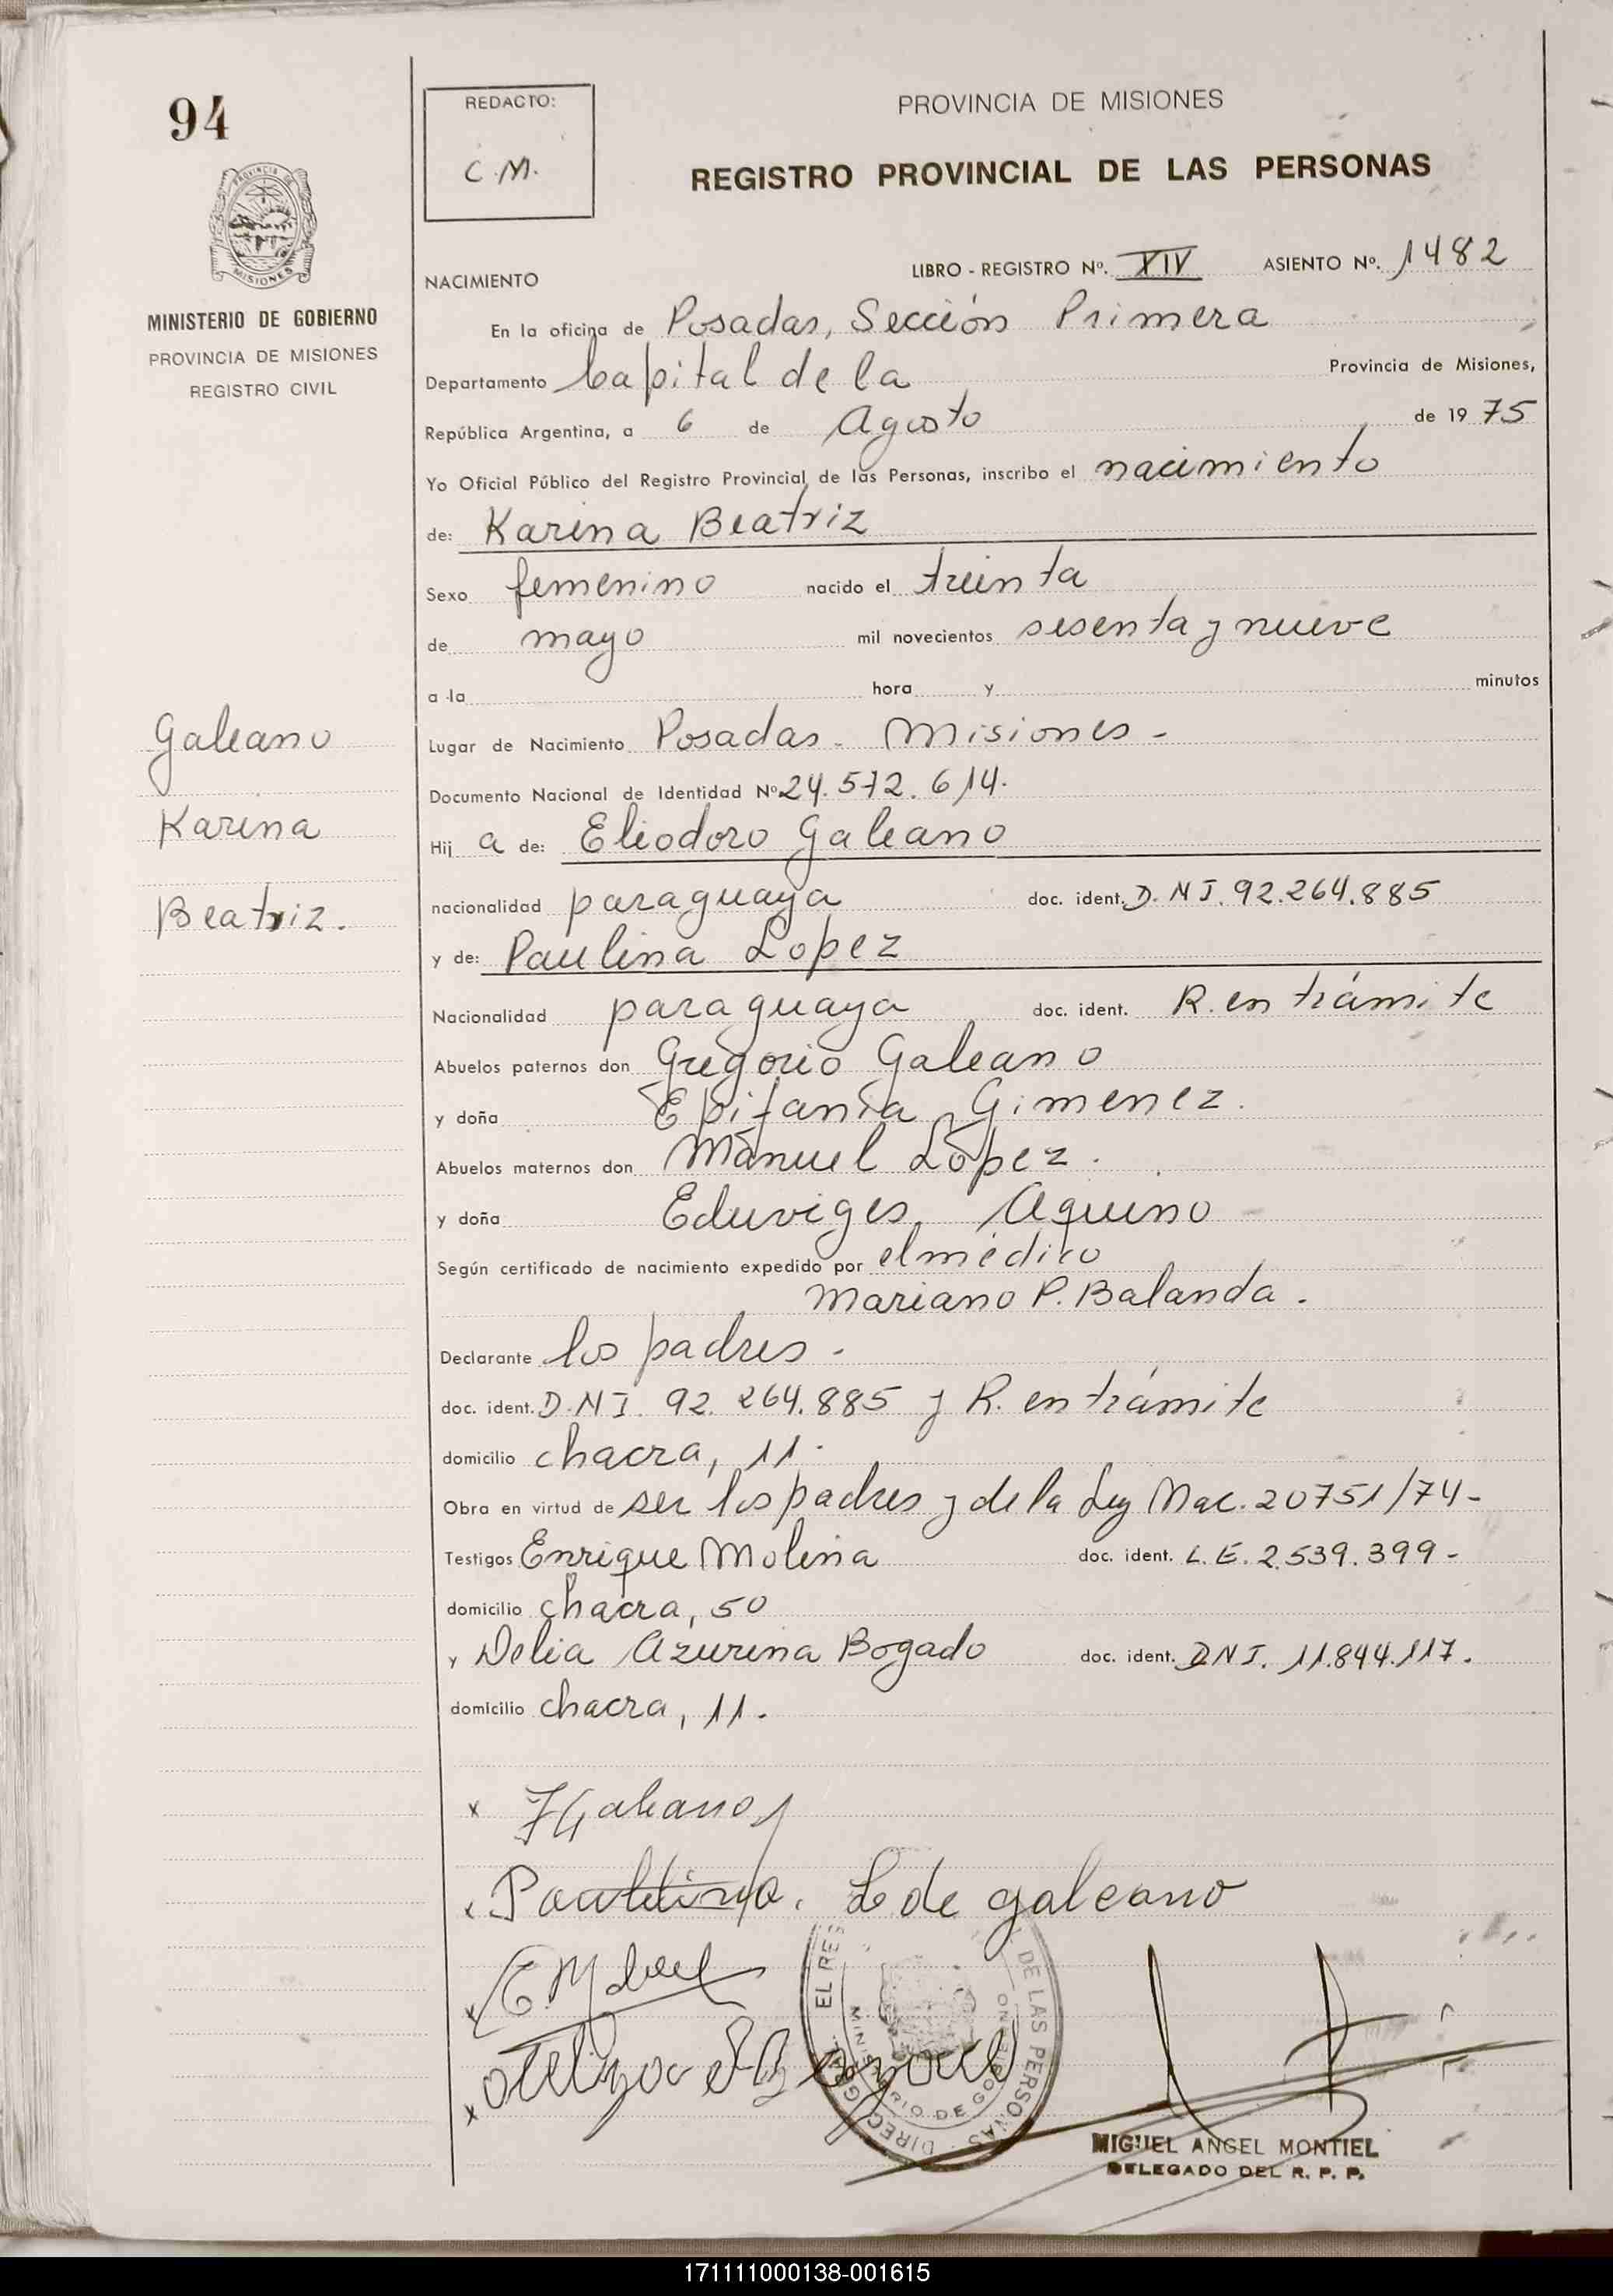 94
REDACTO:
C.M.
PROVINCIA DE MISIONES
REGISTRO PROVINCIAL DE LAS PERSONAS
MINISTERIO DE GOBIERNO
PROVINCIA DE MISIONES
REGISTRO CIVIL
NACIMIENTO LIBRO - REGISTRO Nº. XIV ASIENTO Nº. 1482
En la oficina de Posadas, Sección Primera
Departamento Capital de la Provincia de Misiones,
República Argentina, a 6 de Agosto de 19 75
Yo Oficial Público del Registro Provincial de las Personas, inscribo el nacimiento
de: Karina Beatriz
Sexo femenino nacido el treinta
de mayo mil novecientos sesenta y nueve
a la hora y minutos
Galeano
Karina
Beatriz.
Lugar de Nacimiento Posadas - Misiones -
Documento Nacional de Identidad Nº 24.572.614.
Hij a de: Eliodoro Galeano
nacionalidad paraguaya doc. ident. D.N.I. 92.264.885
y de: Paulina Lopez
Nacionalidad paraguaya doc. ident. R. en trámite
Abuelos paternos don Gregorio Galeano
y doña Epifania Gimenez.
Abuelos maternos don Manuel López.
y doña Eduviges Aquino
Según certificado de nacimiento expedido por el médico
Mariano P. Balanda.
Declarante los padres -
doc. ident. D.N.I. 92.264.885 y R. en trámite
domicilio chacra, 11.
Obra en virtud de ser los padres y de la Ley Nac. 20751/74-
Testigos Enrique Molina doc. ident. L.E. 2.539.399-
domicilio chacra, 50
y Delia Azurina Bogado doc. ident. DNI. 11.844.117.
domicilio chacra, 11.
x Galeano
x L de galeano
x
x
DE LAS PERSONAS
MINISTERIO DE GOBIERNO
MIGUEL ANGEL MONTIEL
DELEGADO DEL R. P. P.
171111000138-001615